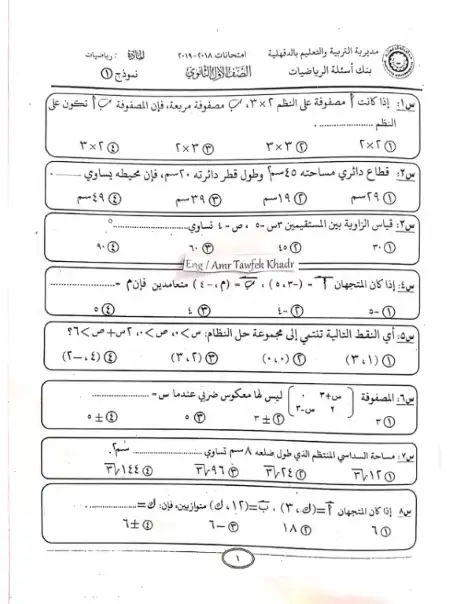 مديرية التربية والتعليم بالدقهلية
امتحانات ٢٠١٨-٢٠١٩
المادة : رياضيات
بنك أسئلة الرياضيات
الصف الأول الثانوي
نموذج (١)
س١: إذا كانت أ مصفوفة على النظم ٢×٣، ب مصفوفة مربعة، فإن المصفوفة ب أ تكون على
النظم ....................
(١) ٢×٢ (٢) ٣×٣ (٣) ٢×٣ (٤) ٣×٢
س٢: قطاع دائري مساحته ٤٥سم٢ وطول قطر دائرته ٢٠سم، فإن محيطه يساوي ..........
(١) ٢٩سم (٢) ١٩سم (٣) ٣٩سم (٤) ٤٩سم
س٣: قياس الزاوية بين المستقيمين ٣س=٥ ، ص=٤ تساوي....................°
(١) ٣٠ (٢) ٤٥ (٣) ٦٠ (٤) ٩٠
Eng / Amr Tawfek Khadr
س٤: إذا كان المتجهان أ = (-٣، ٥) ، ب = (م، -٤) متعامدين فإن م = ....................
(١) -٥ (٢) -٤ (٣) ٤ (٤) ٥
س٥: أي النقط التالية تنتمي إلى مجموعة حل النظام: س>٠، ص>٠، ٢س+ص>٦؟
(١) (١، ٣) (٢) (٠، ٠) (٣) (٢، ٣) (٤) (٤، -٢)
س٦: المصفوفة ( س+٣ ٠
٢ س-٣ ) ليس لها معكوس ضربي عندما س = ....................
(١) ٣ (٢) ±٣ (٣) ٥ (٤) ±٥
س٧: مساحة السداسي المنتظم الذي طول ضلعه ٨سم تساوي .................... سم٢.
(١) ١٢√٣ (٢) ٢٤√٣ (٣) ٩٦√٣ (٤) ١٤٤√٣
س٨ إذا كان المتجهان أ=(ك، ٣) ، ب=(١٢، ك) متوازيين، فإن: ك=....................
(١) ٦ (٢) ١٨ (٣) -٦ (٤) ±٦
١